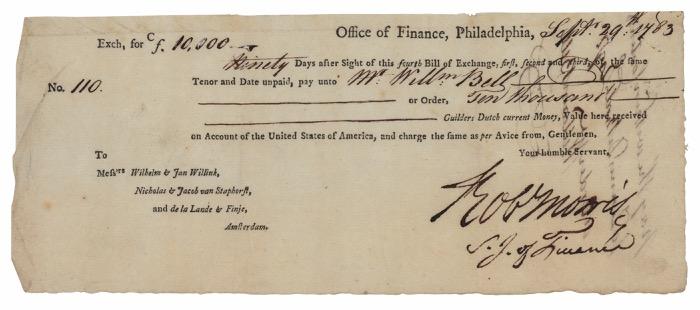 Office of Finance, Philadelphia, Septr 29th 1783
Exch, for Cf. 10,000
Ninety Days after Sight of this fourth Bill of Exchange, first, second and third, of the same
No. 110. Tenor and Date unpaid, pay unto Mr Willm Bell
or Order, Ten thousand
Guilders Dutch current Money, Value here received
on Account of the United States of America, and charge the same as per Avice from, Gentlemen,
Your humble Servant,
To
Messrs Wilhelm & Jan Willink,
Nicholas & Jacob van Staphorst,
and de la Lande & Finje,
Amsterdam.
Robt Morris
S. I. of Finance